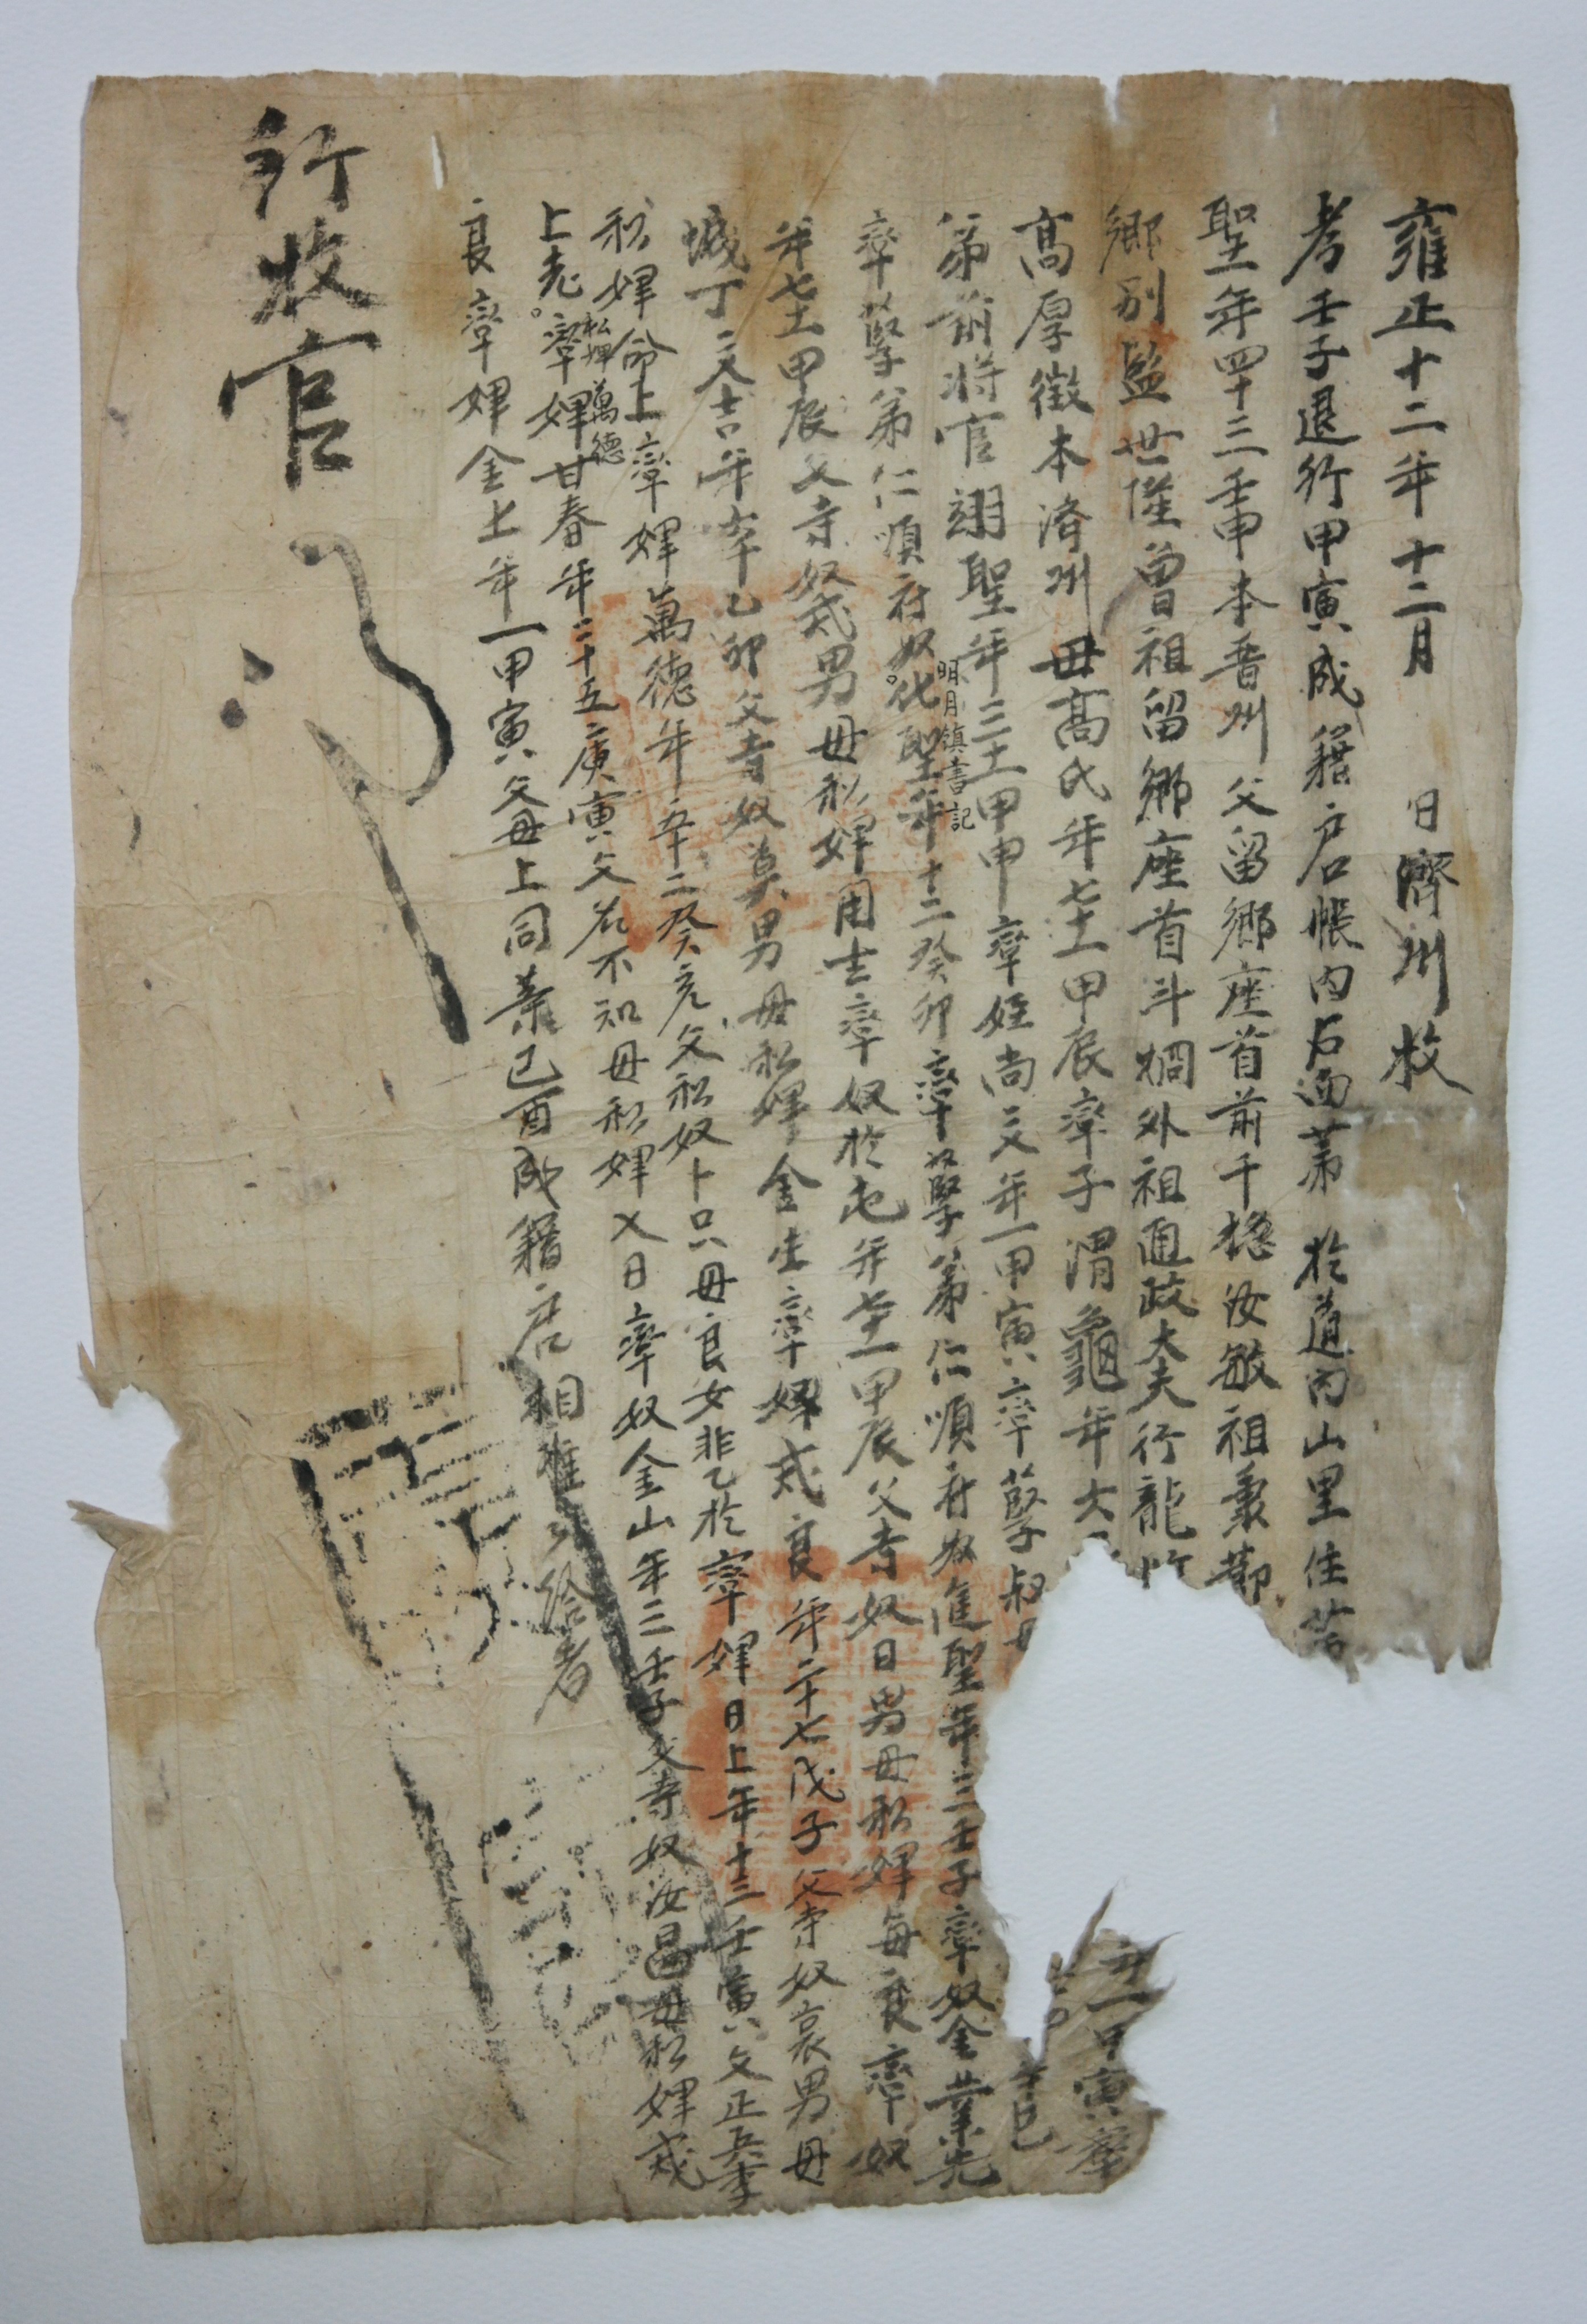 雍正十二年十二月 日濟州牧
考壬子退行甲寅成籍户口帳内右面第 於道内山里住
聖年四十三壬申本晋州父留鄉座首前千摠汝敏祖秉節
鄉別監世隆曾祖留鄉座首斗柄外祖通政大夫行龍
高厚徵本濟州母高氏年七十一甲辰率子渭龜年
一甲寅率
弟前將官翊聖年三十一甲申率姪尚文年一甲寅率孽叔
率孽弟仁順府奴化聖年十二癸卯率孽弟仁順府奴進聖年三壬子率奴金業先
明月鎮書記
年七十一甲辰父寺奴戒男母私婢用士率奴於屯年七十一甲辰父寺奴日男母私婢每良率奴
城丁文吉年六十乙卯父寺奴莫男母私婢金生率婢戒良年二十七戊子父寺奴哀男母
私婢命上率婢萬德年五十二癸亥父私奴卜只母良女非乙於率婢日上年十三壬寅父正兵李
私婢萬德
上老率婢甘春年二十五庚寅父名不知母私婢乂日率奴金山年三壬子父寺奴汝昌母私婢戒
良率婢金上年一甲寅父母上同等己酉成籍户相准 給者
行牧官